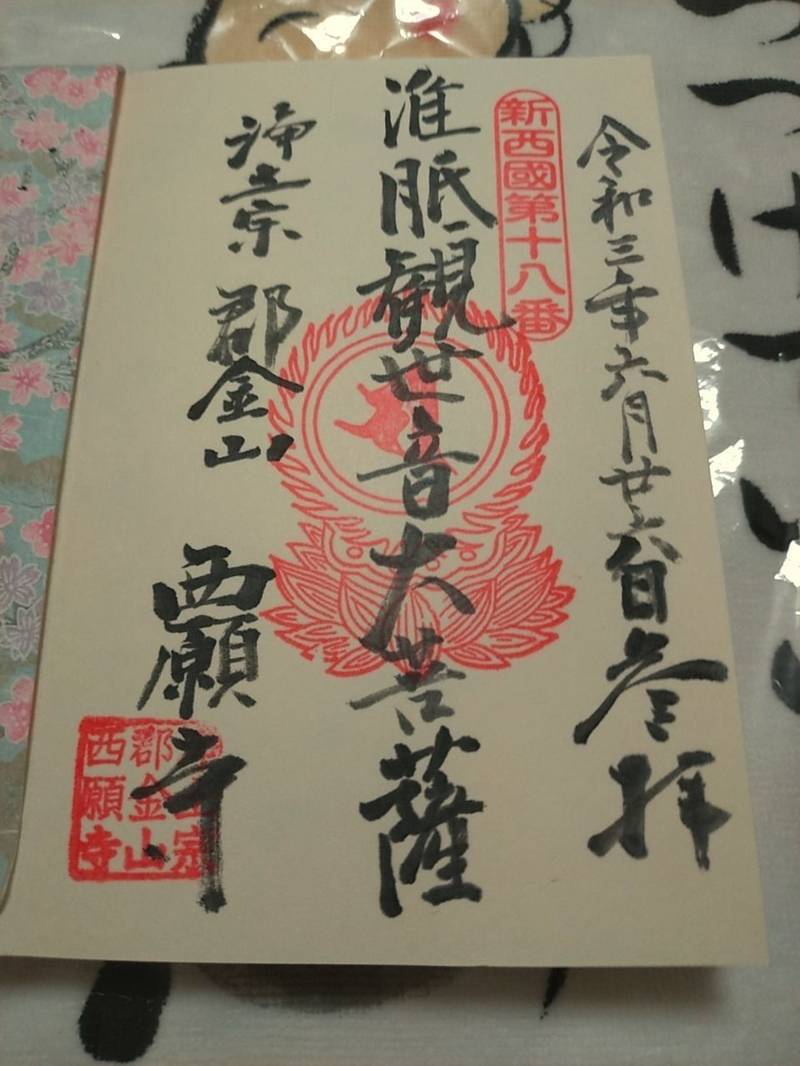 令和三年六月廿六日参拝
新西國第十八番
准胝観世音大菩薩
浄土宗 郡金山 西願寺
郡金山
西願寺